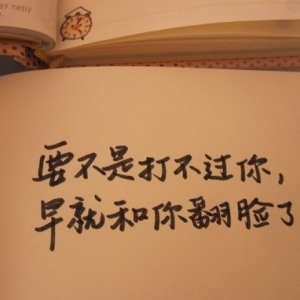 要不是打不过你，
早就和你翻脸了